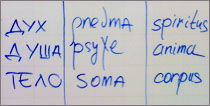 ДУХ pneuma spiritus
ДУША psyxe anima
ТЕЛО SOMA corpus